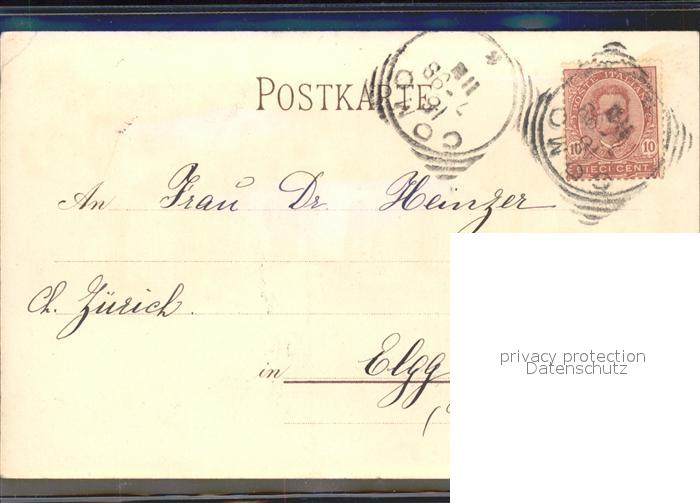 POSTKARTE
COMO
POSTE ITALIANE
10 10
DIECI CENT
An Frau Dr. Heinzer
Ct. Zürich.
in Elgg
(
privacy protection
Datenschutz